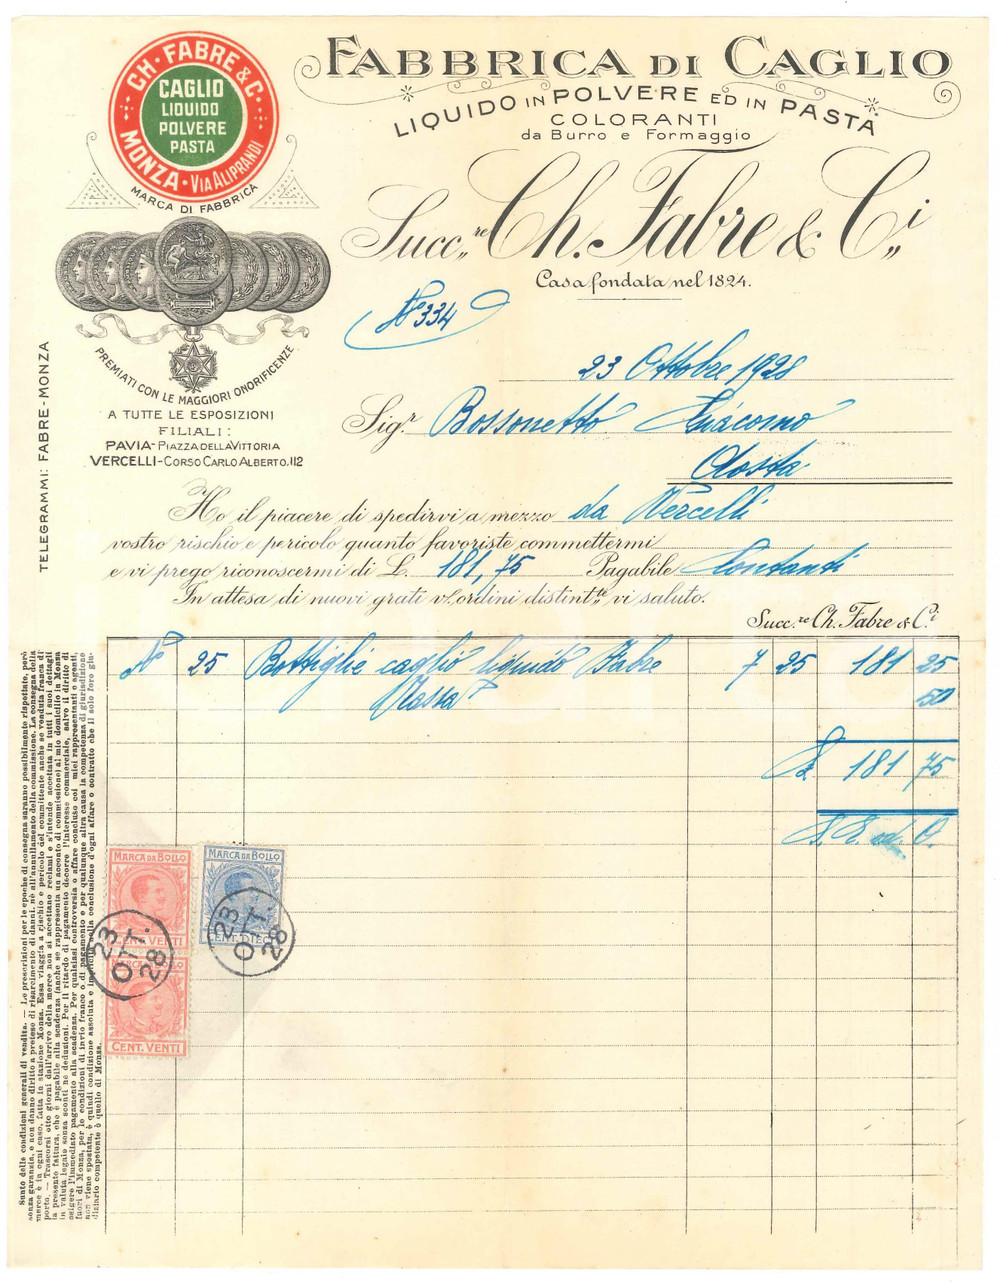 CH. FABRE & C.
CAGLIO
LIQUIDO
POLVERE
PASTA
MONZA · VIA ALIPRANDI
MARCA DI FABBRICA
FABBRICA DI CAGLIO
LIQUIDO IN POLVERE ED IN PASTA
COLORANTI
da Burro e Formaggio
Succ.re Ch. Fabre & C.i
Casa fondata nel 1824.
No 334
PREMIATI CON LE MAGGIORI ONORIFICENZE
A TUTTE LE ESPOSIZIONI
FILIALI:
PAVIA - PIAZZA DELLA VITTORIA
VERCELLI - CORSO CARLO ALBERTO, 112
TELEGRAMMI: FABRE - MONZA
23 Ottobre 1928
Sigr. Bossonetto Giacomo
Aosta
Ho il piacere di spedirvi a mezzo da Vercelli
vostro rischio e pericolo quanto favoriste commettermi
e vi prego riconoscermi di L. 181,75 Pagabile Contanti
In attesa di nuovi grati vs. ordini distintte vi saluto.
Succ.re Ch. Fabre & C.i
No 25 Bottiglie caglio liquido Fabre 7 25 181 25
Tassa 50
L. 181 75
S. E. ed O.
MARCA DA BOLLO
CENT. VENTI
MARCA DA BOLLO
CENT. DIECI
MARCA DA BOLLO
CENT. VENTI
23
OTT.
28
23
OTT.
28
Sunto delle condizioni generali di vendita. — Le prescrizioni per le epoche di consegna saranno possibilmente rispettate, però
senza garanzia, e non danno diritto a pretese di risarcimento di danni, nè all'annullamento della commissione. La consegna della
merce è in ogni caso, fatta in stazione Monza. Essa viaggia a rischio e pericolo del committente anche se venduta franca di
porto. — Trascorsi otto giorni dall'arrivo della merce non si accettano reclami e s'intende accettata in tutti i suoi dettagli
la presente fattura, che è pagabile alla scadenza (anche se rappresenta un acconto di commissione) al mio domicilio in Monza
in valuta legale senza sconti nè deduzioni. Per il ritardo di pagamento decorre l'interesse commerciale, salvo il diritto di
esigere l'immediato pagamento alla scadenza. Per qualsiasi controversia o affare concluso coi miei rappresentanti e agenti,
fuori di Monza, per le condizioni di invio franco o di pagamento e per qualunque altra causa la competenza di giurisdizione
non viene spostata, è quindi condizione assoluta e nella conclusione d'ogni affare o contratto che il solo foro giu-
diziario competente è quello di Monza.